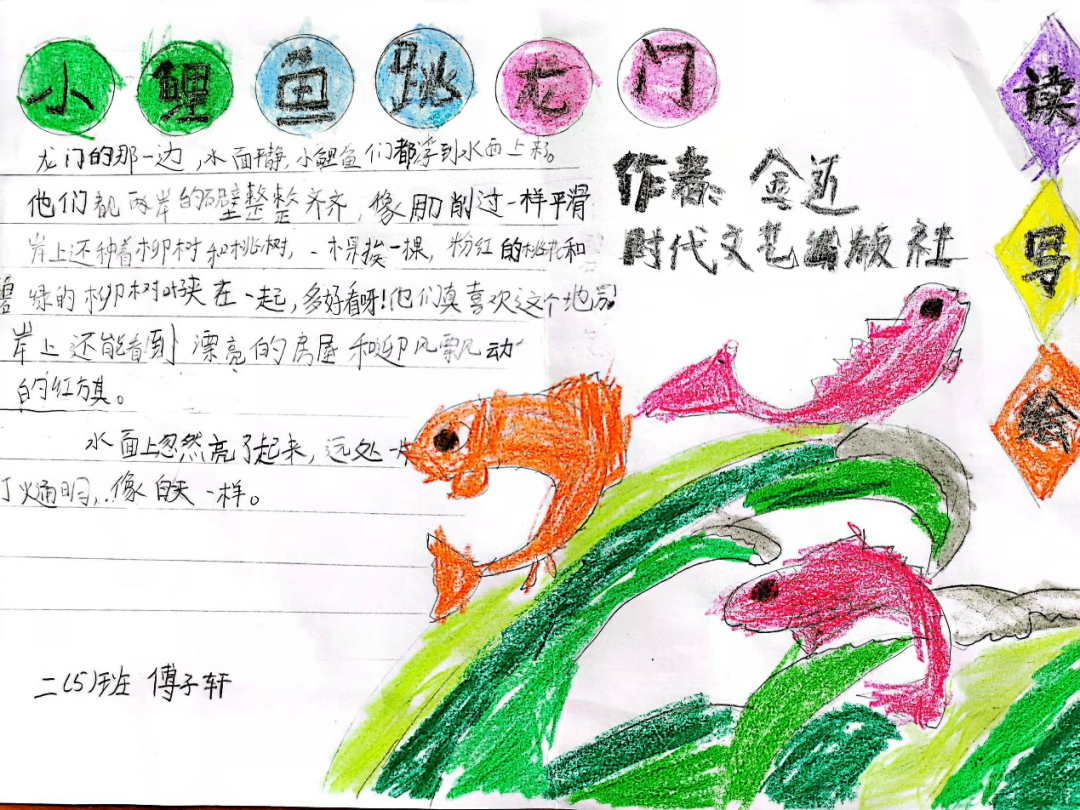 小鲤鱼跳龙门
龙门的那一边,水面平静,小鲤鱼们都浮到水面上来。
他们看见两岸的石壁整整齐齐,像用刀削过一样平滑
岸上还种着柳树和桃树,一棵挨一棵,粉红的桃花和
碧绿的柳树叶夹在一起,多好看呀!他们真喜欢这个地方!
岸上还能看到漂亮的房屋和迎风飘动
的红旗。
水面上忽然亮了起来,远处一片
灯火通明,像白天一样。
二(5)班 傅子轩
作者:金近
时代文艺出版社
读
写
绘